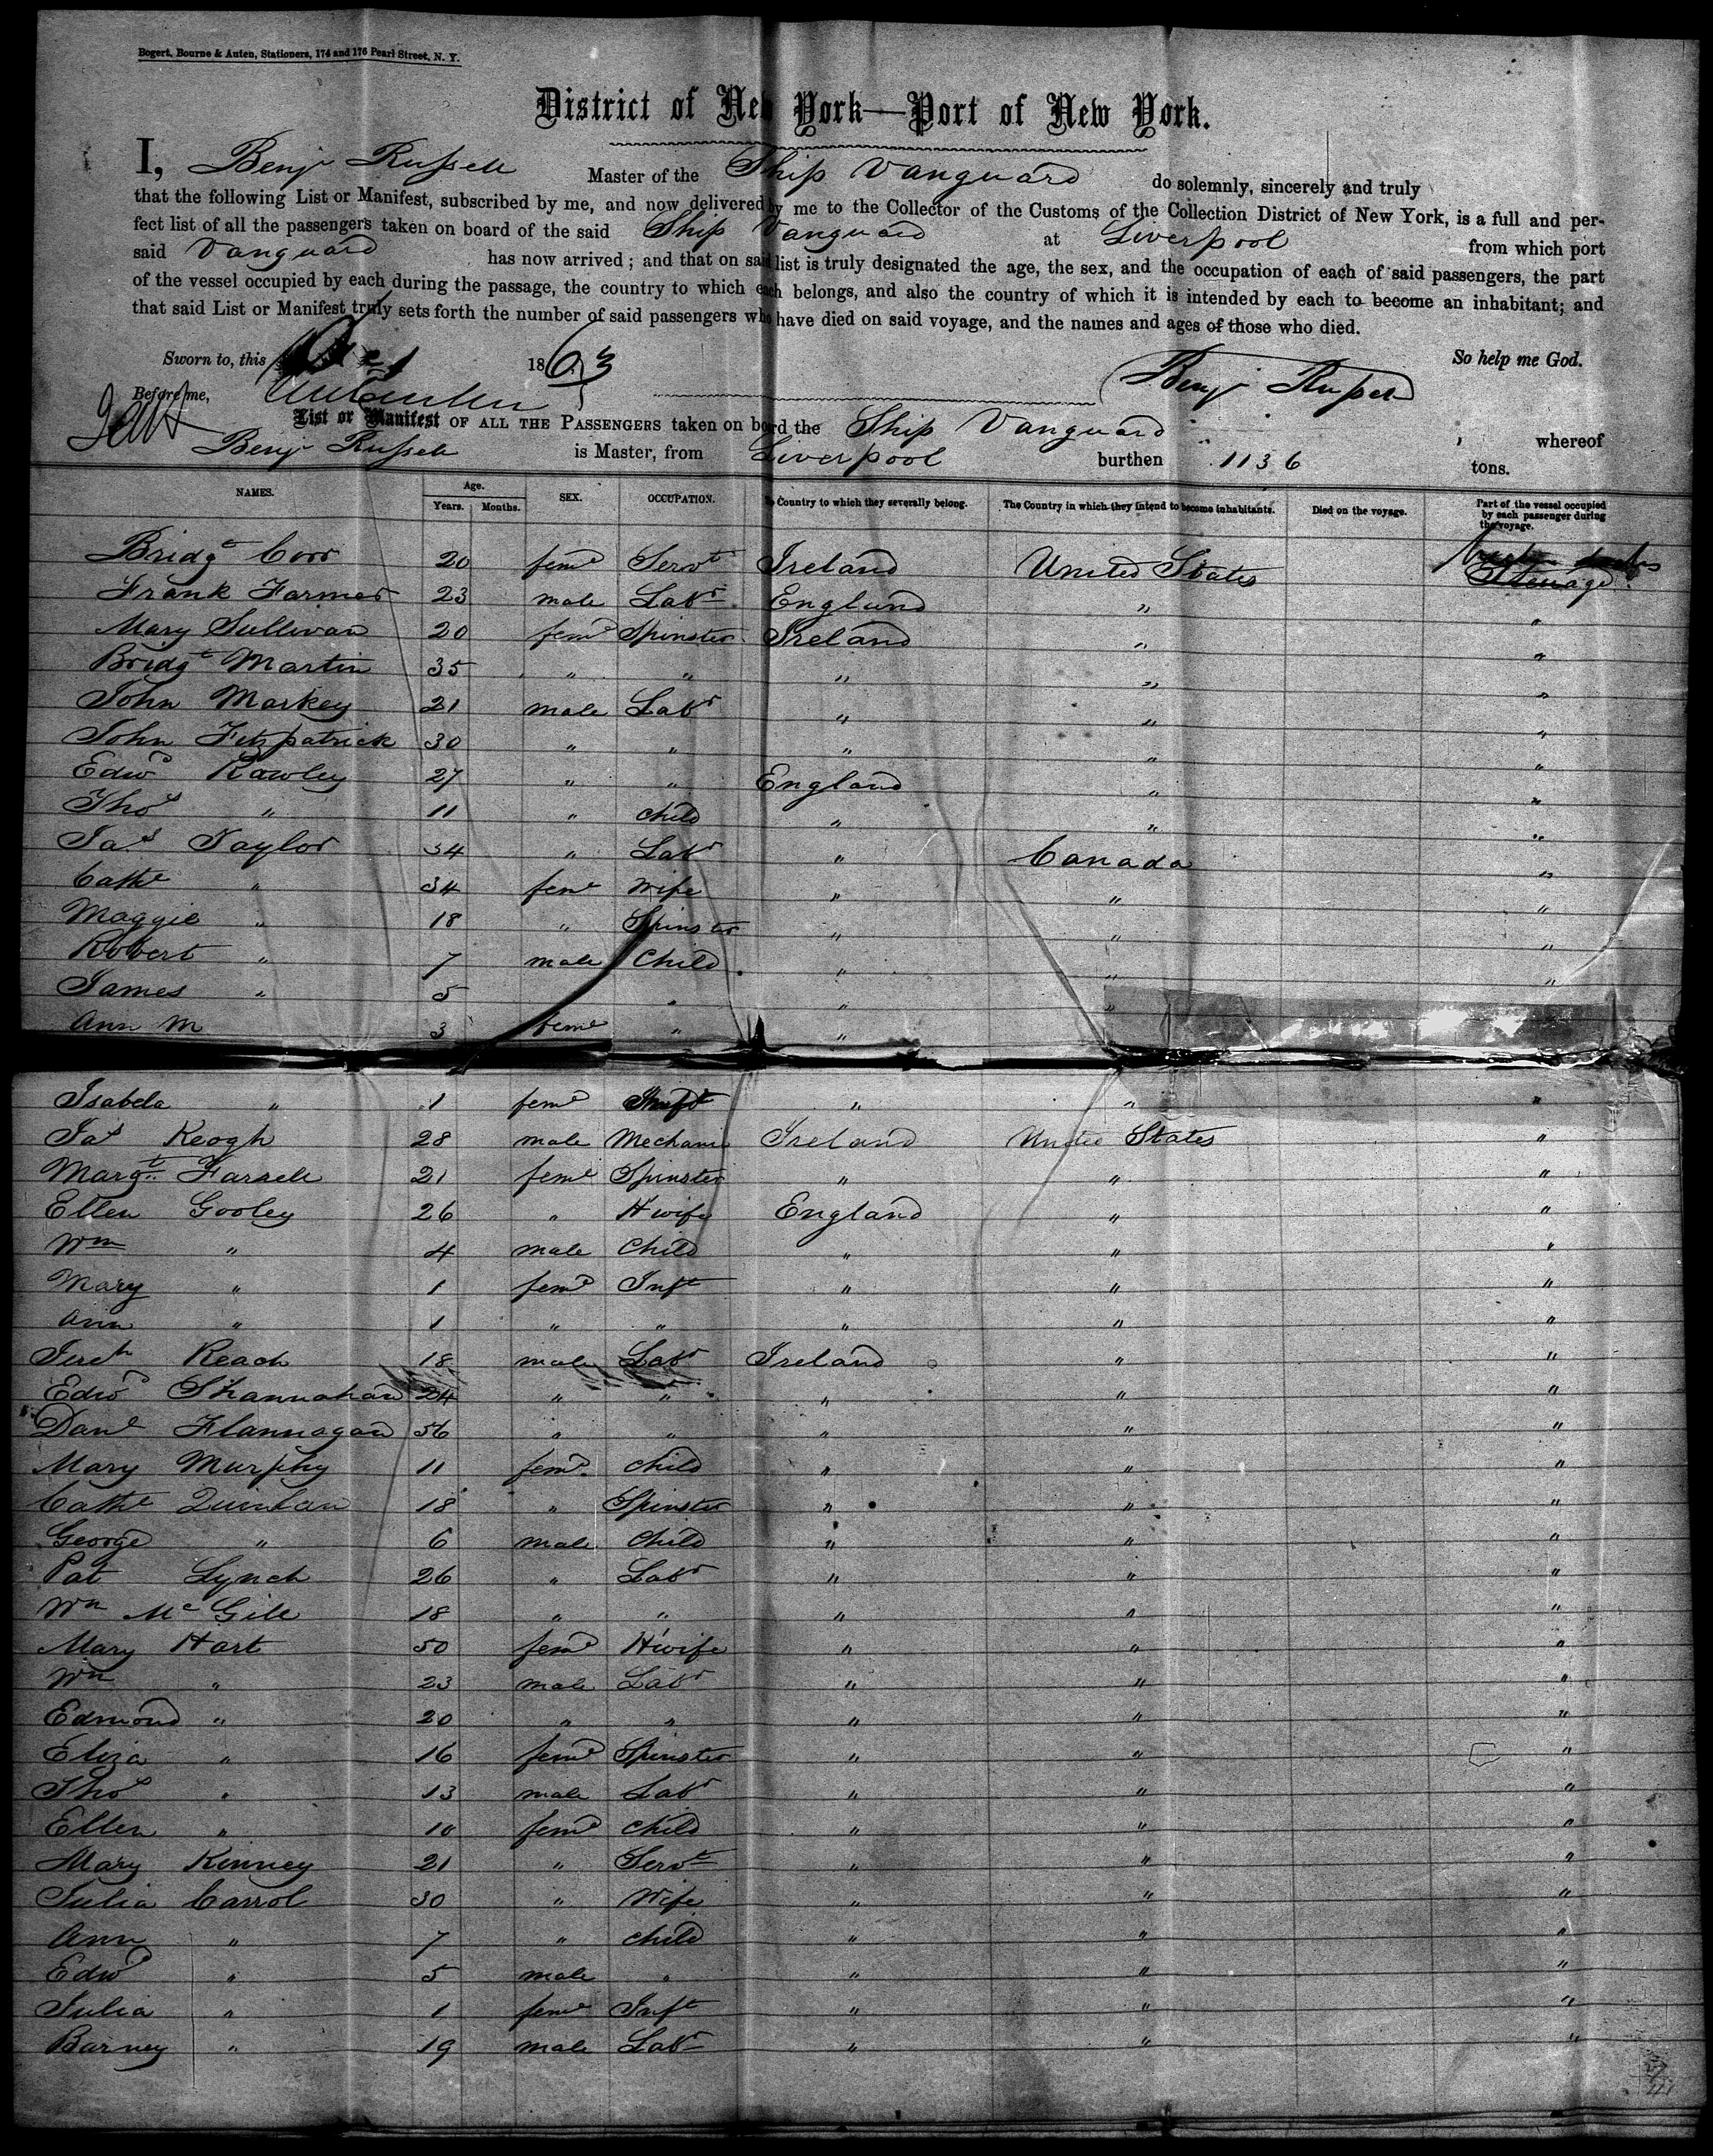 Bogert, Bourne & Auten, Stationers, 174 and 176 Pearl Street, N. Y.
District of New York—Port of New York.
I, Benj Russell Master of the Ship Vanguard do solemnly, sincerely and truly
that the following List or Manifest, subscribed by me, and now delivered by me to the Collector of the Customs of the Collection District of New York, is a full and per-
fect list of all the passengers taken on board of the said Ship Vanguard at Liverpool from which port
said Vanguard has now arrived; and that on said list is truly designated the age, the sex, and the occupation of each of said passengers, the part
of the vessel occupied by each during the passage, the country to which each belongs, and also the country of which it is intended by each to become an inhabitant; and
that said List or Manifest truly sets forth the number of said passengers who have died on said voyage, and the names and ages of those who died.
Sworn to, this 1863 So help me God.
Before me, Benj Russell
List or Manifest OF ALL THE PASSENGERS taken on board the Ship Vanguard, whereof
Benj Russell is Master, from Liverpool burthen 1136 tons.
NAMES. Age. Years. Months. SEX. OCCUPATION. Country to which they severally belong. The Country in which they intend to become inhabitants. Died on the voyage. Part of the vessel occupied by each passenger during the voyage.
Bridgt Corr 20 feme Servt Ireland United States Steerage
Frank Farmer 23 male Labr England " "
Mary Sullivan 20 feme Spinster Ireland " "
Bridgt Martin 35 " " " " "
John Markey 21 male Labr " " "
John Fitzpatrick 30 " " " " "
Edwd Rowley 27 " " England " "
Thos " 11 " child " " "
Jas Taylor 34 " Labr " Canada "
Cathe " 34 feme wife " " "
Maggie " 18 " Spinster " " "
Robert " 7 male Child " " "
James " 5 " " "
Ann M 3 feme " "
Isabela " 1 feme Inft " " "
Jas Keogh 28 male Mechanic Ireland United States "
Margt Farrell 21 feme Spinster " " "
Ellen Gooley 26 " H wife England " "
Wm " 4 male Child " " "
Mary " 1 feme Inft " " "
Ann " 1 " " " " "
Jereh Reach 18 male Labr Ireland " "
Edwd Shannahan 24 " " " " "
Danl Flannagan 56 " " " " "
Mary Murphy 11 feme child " " "
Cathe Quinlan 18 " Spinster " " "
George " 6 male child " " "
Pat Lynch 26 " Labr " " "
Wm McGill 18 " " " " "
Mary Hart 50 feme H wife " " "
Wm " 23 male Labr " " "
Edmond " 20 " " " " "
Eliza " 16 feme Spinster " " "
Thos " 13 male Labr " " "
Ellen " 10 feme child " " "
Mary Kinney 21 " Servt " " "
Julia Carrol 30 " Wife " " "
Ann " 7 " child " " "
Edwd " 5 male " " " "
Julia " 1 feme Inft " " "
Barney " 19 male Labr " " "